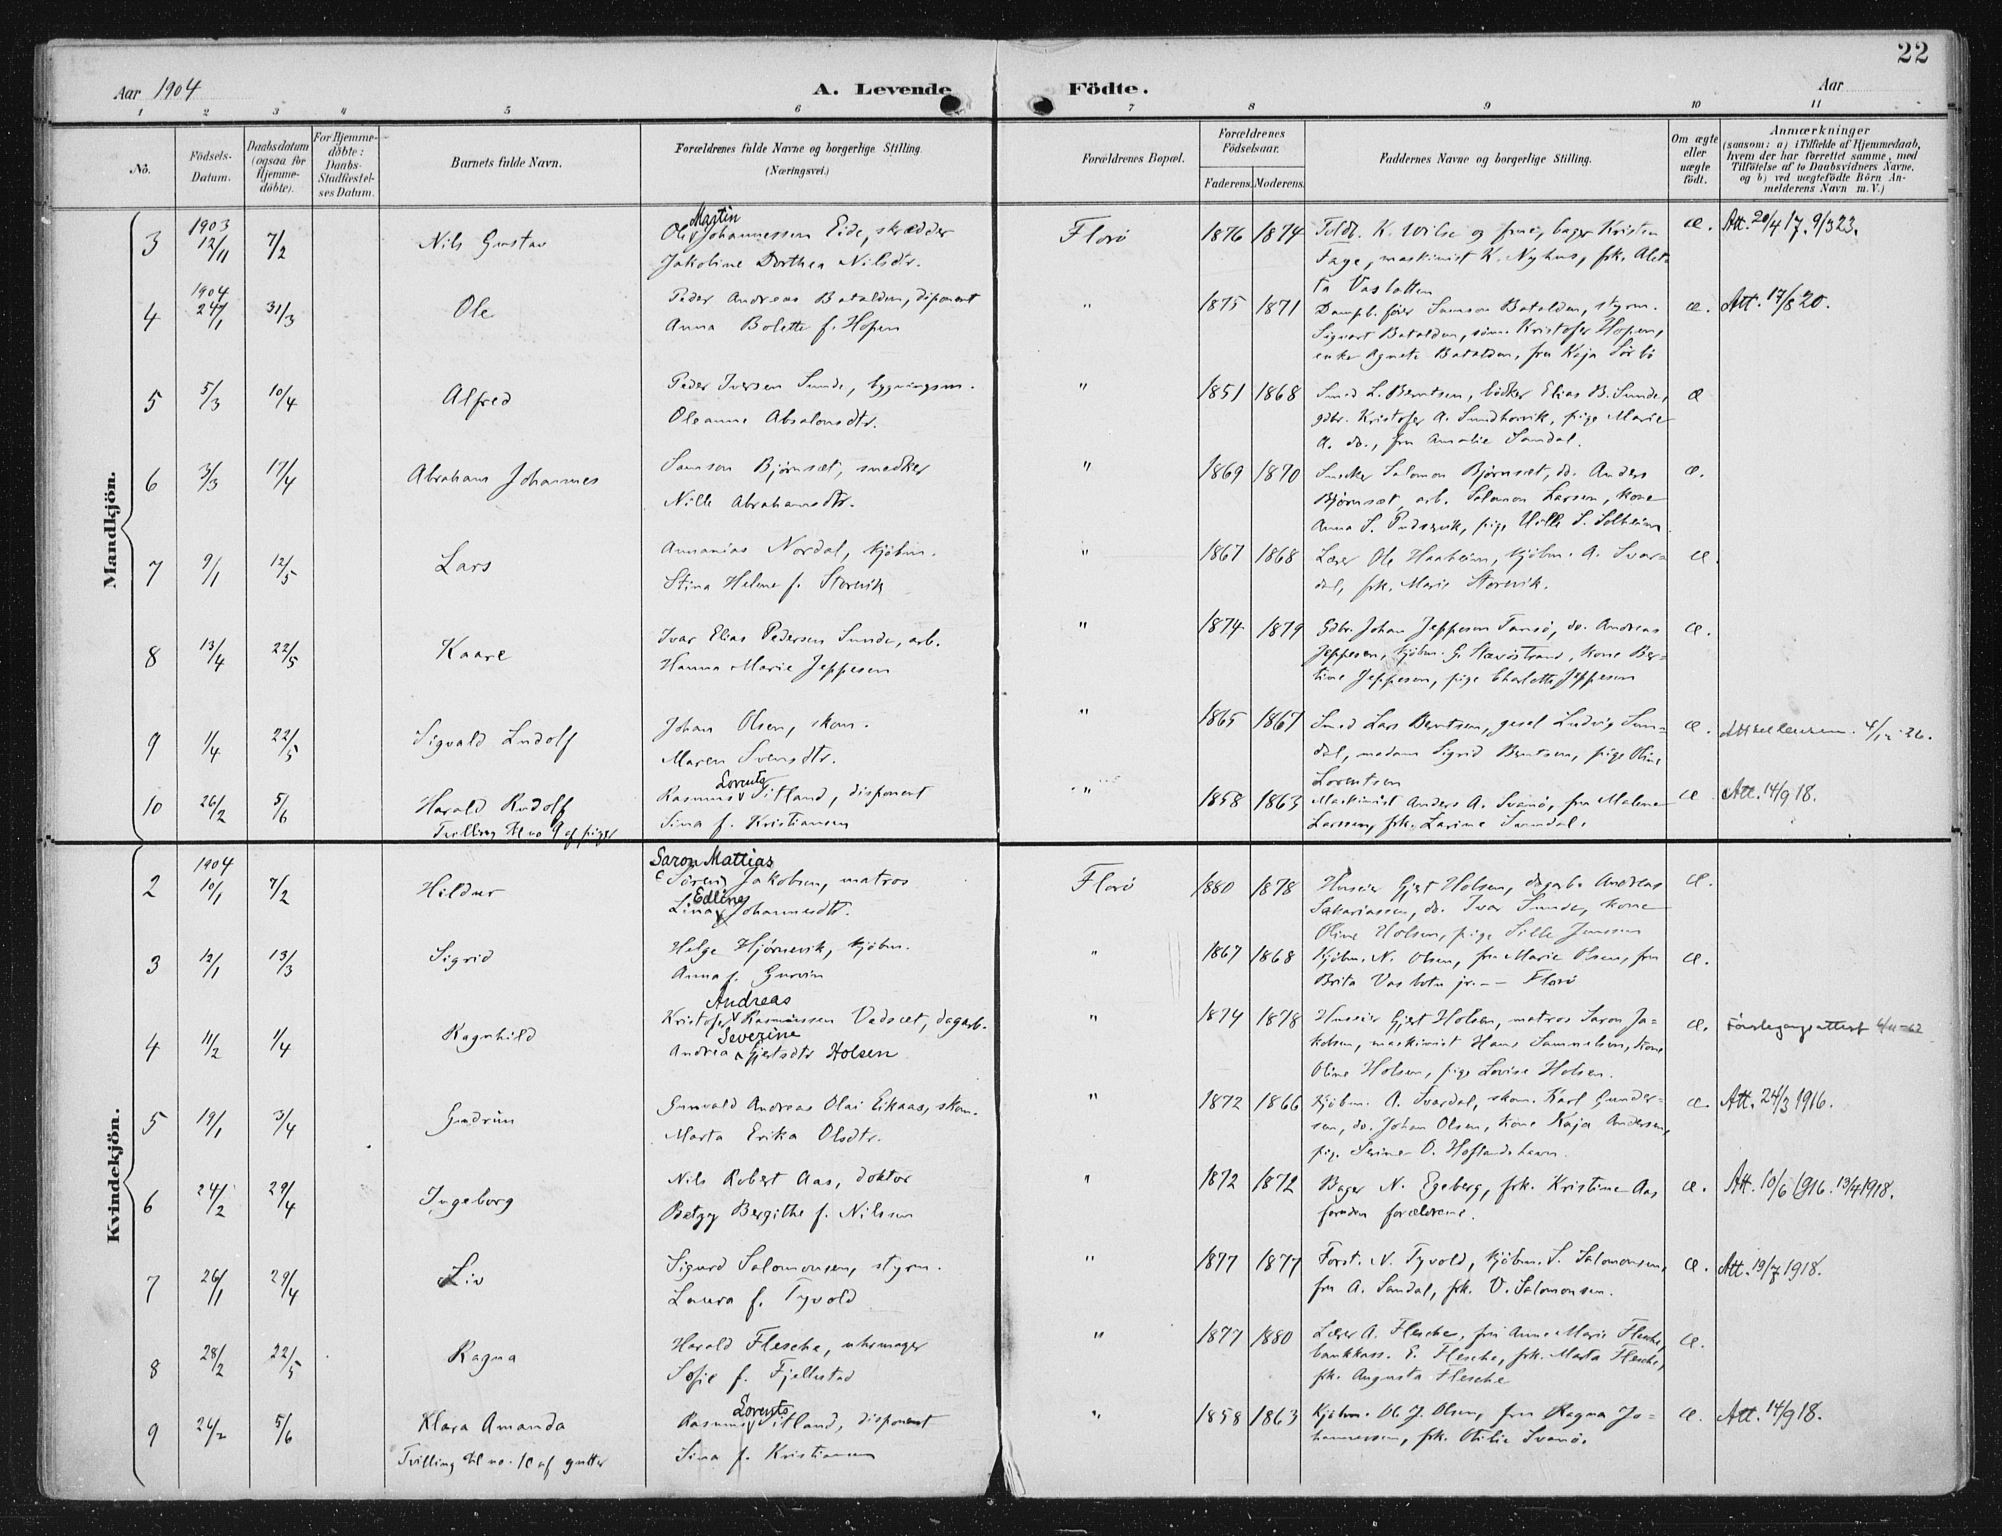 22
Aar 1904 A. Levende Födte. Aar
1 2 3 4 5 6 7 8 9 10 11
No.
Födsels-Datum.
Daabsdatum (ogsaa for Hjemmedöbte).
For Hjemmedöbte: Daabs-Stadfæstelses Datum.
Barnets fulde Navn.
Forældrenes fulde Navne og borgerlige Stilling.
(Næringsvei.)
Forældrenes Bopæl.
Forældrenes Födselsaar.
Faderens. Moderens.
Faddernes Navne og borgerlige Stilling.
Om ægte eller uægte födt.
Anmærkninger
(saasom: a) i Tilfælde af Hjemmedaab,
hvem der har forrettet samme, med
Tilföielse af to Daabsvidners Navne,
og b) ved uægtefödte Börn An-
melderens Navn m. V.)
Mandkjön.
3 1903 12/11 7/2 Nils Gustav
Martin
Ole Johannessen Eide, skrædder
Jakobine Dorthea Nilsdtr.
Florö 1876 1874
Toldb. K. Wilse og frue, bager Kristen
Fage, maskinist K. Nyhus, frk. Alet-
ta Vasbotten
æ. Att. 20/4 17. 9/3 23.
4 1904 24/1 31/3 Ole
Peder Andreas Batalden, disponent
Anna Bolette f. Hopen
" 1875 1871
Dampb.förer Samson Batalden, styrm.
Sigvart Batalden, Kristofer Hopen,
enke Agnete Batalden, fru Kaja Sörbö
æ. Att. 17/8 20.
5 5/3 10/4 Alfred
Peder Iversen Sunde, bygningsm.
Oleanne Absalonsdtr.
" 1851 1868
Smed L. Berntsen, bödker Elias B. Sunde,
gdbr. Kristofer A. Sundhovik, pige Marie
A. do., fru Amalie Sandal.
æ
6 3/3 17/4 Abraham Johannes
Samson Björnset, snedker
Nille Abrahamsdtr.
" 1869 1870
Snedker Salomon Björnset, do. Anders
Björnset, arb. Salomon Larsen, kone
Anna S. pige Nille S. Solheim
æ.
7 9/1 12/5 Lars
Annanias Nordal, kjöbm.
Stina Helene f. Storevik
" 1867 1868
Lærer Ole Haaheim, kjöbm. A. Svar-
dal, frk. Marie Storevik.
æ.
8 13/4 22/5 Kaare
Ivar Elias Pedersen Sunde, arb.
Hanna Marie Jeppesen
" 1874 1879
Gdbr. Johan Jeppesen Tansö, do. Andreas
Jeppesen, kjöbm. G. kone Ber-
tine Jeppesen, pige Charlotte Jeppesen
æ.
9 1/4 22/5 Sigvald Ludolf
Johan Olsen, skom.
Maren Svensdtr.
" 1865 1867
Smed Lars Berntsen, gesel Ludvig San-
dal, madam Sigrid Berntsen, pige Oline
Lorentsen
æ.
10 26/2 5/6 Harald Rudolf
Tvilling til no 9 af piger
Lorents
Rasmus Sitland, disponent
Sina f. Kristiansen
" 1858 1863
Maskinist Anders A. Svanö, fru Malene
Larssen, frk. Larine Svandal.
æ. Att. 14/9 18.
Kvindekjön.
2 1904 10/1 7/2 Hildur
Saron Mattias
Sören Jakobsen, matros
Edline
Lina Johannesdtr.
Florö 1880 1878
Huseier Gjert Holsen, dagarb. Andreas
Sakariassen, do. Ivar Sunde, kone
Oline Holsen, pige Sille Jenssen
æ.
3 12/1 13/3 Sigrid
Helge Hjörnevik, kjöbm.
Anna f. Gurvin
" 1867 1868
Kjöbm. N. Olsen, fru Marie Olsen, fru
Brita Vasbotn jr. — Florö
æ.
4 11/2 1/4 Ragnhild
Andreas
Kristofer Rasmussen Vedset, dagarb.
Severine
Andrea Gjertsdtr Holsen
" 1874 1878
Huseier Gjert Holsen, matros Saron Ja-
kobsen, maskinist Hans Samuelsen, kone
Oline Holsen, pige Lovise Holsen.
æ. Förstegangsattest 6/11-62
5 19/1 3/4 Gudrun
Gunvald Andreas Olai Eikaas, skom.
Marta Erika Olsdtr.
" 1872 1866
Kjöbm. A. Svardal, skom. Karl Gunder-
sen, do. Johan Olsen, kone Kaja Andersen,
pige Serine O. Hoflandshavn.
æ. Att. 24/3 1916.
6 24/2 29/4 Ingeborg
Nils Robert Aas, doktor
Betzy Bergithe f. Nilssen
" 1872 1872
Bager N. Egeberg, frk. Kristine Aas
foruden forældrene.
æ. Att. 10/6 1916. 13/4 1918.
7 26/1 29/4 Liv
Sigurd Salomonsen, styrm.
Laura f. Tyvold
" 1877 1877
Forst. N. Tyvold, kjöbm. S. Salomonsen,
fru A. Sandal, frk. V. Salomonsen.
æ. Att. 19/7 1918.
8 28/2 22/5 Ragna
Harald Flesche, uhrmager
Sofie f. Fjellestad
" 1877 1880
Lærer A. Flesche, fru Anne Marie Flesche,
bankkass. E. Flesche, frk. Marta Flesche,
frk. Augusta Flesche
æ.
9 26/2 5/6 Klara Amanda
Tvilling til no. 10 af gutter
Lorents
Rasmus Sitland, disponent
Sina f. Kristiansen
" 1858 1863
Kjöbm. Ole J. Olsen, fru Ragna Jo-
hannessen, frk. Otilie Svanö.
æ. Att. 14/9 18.